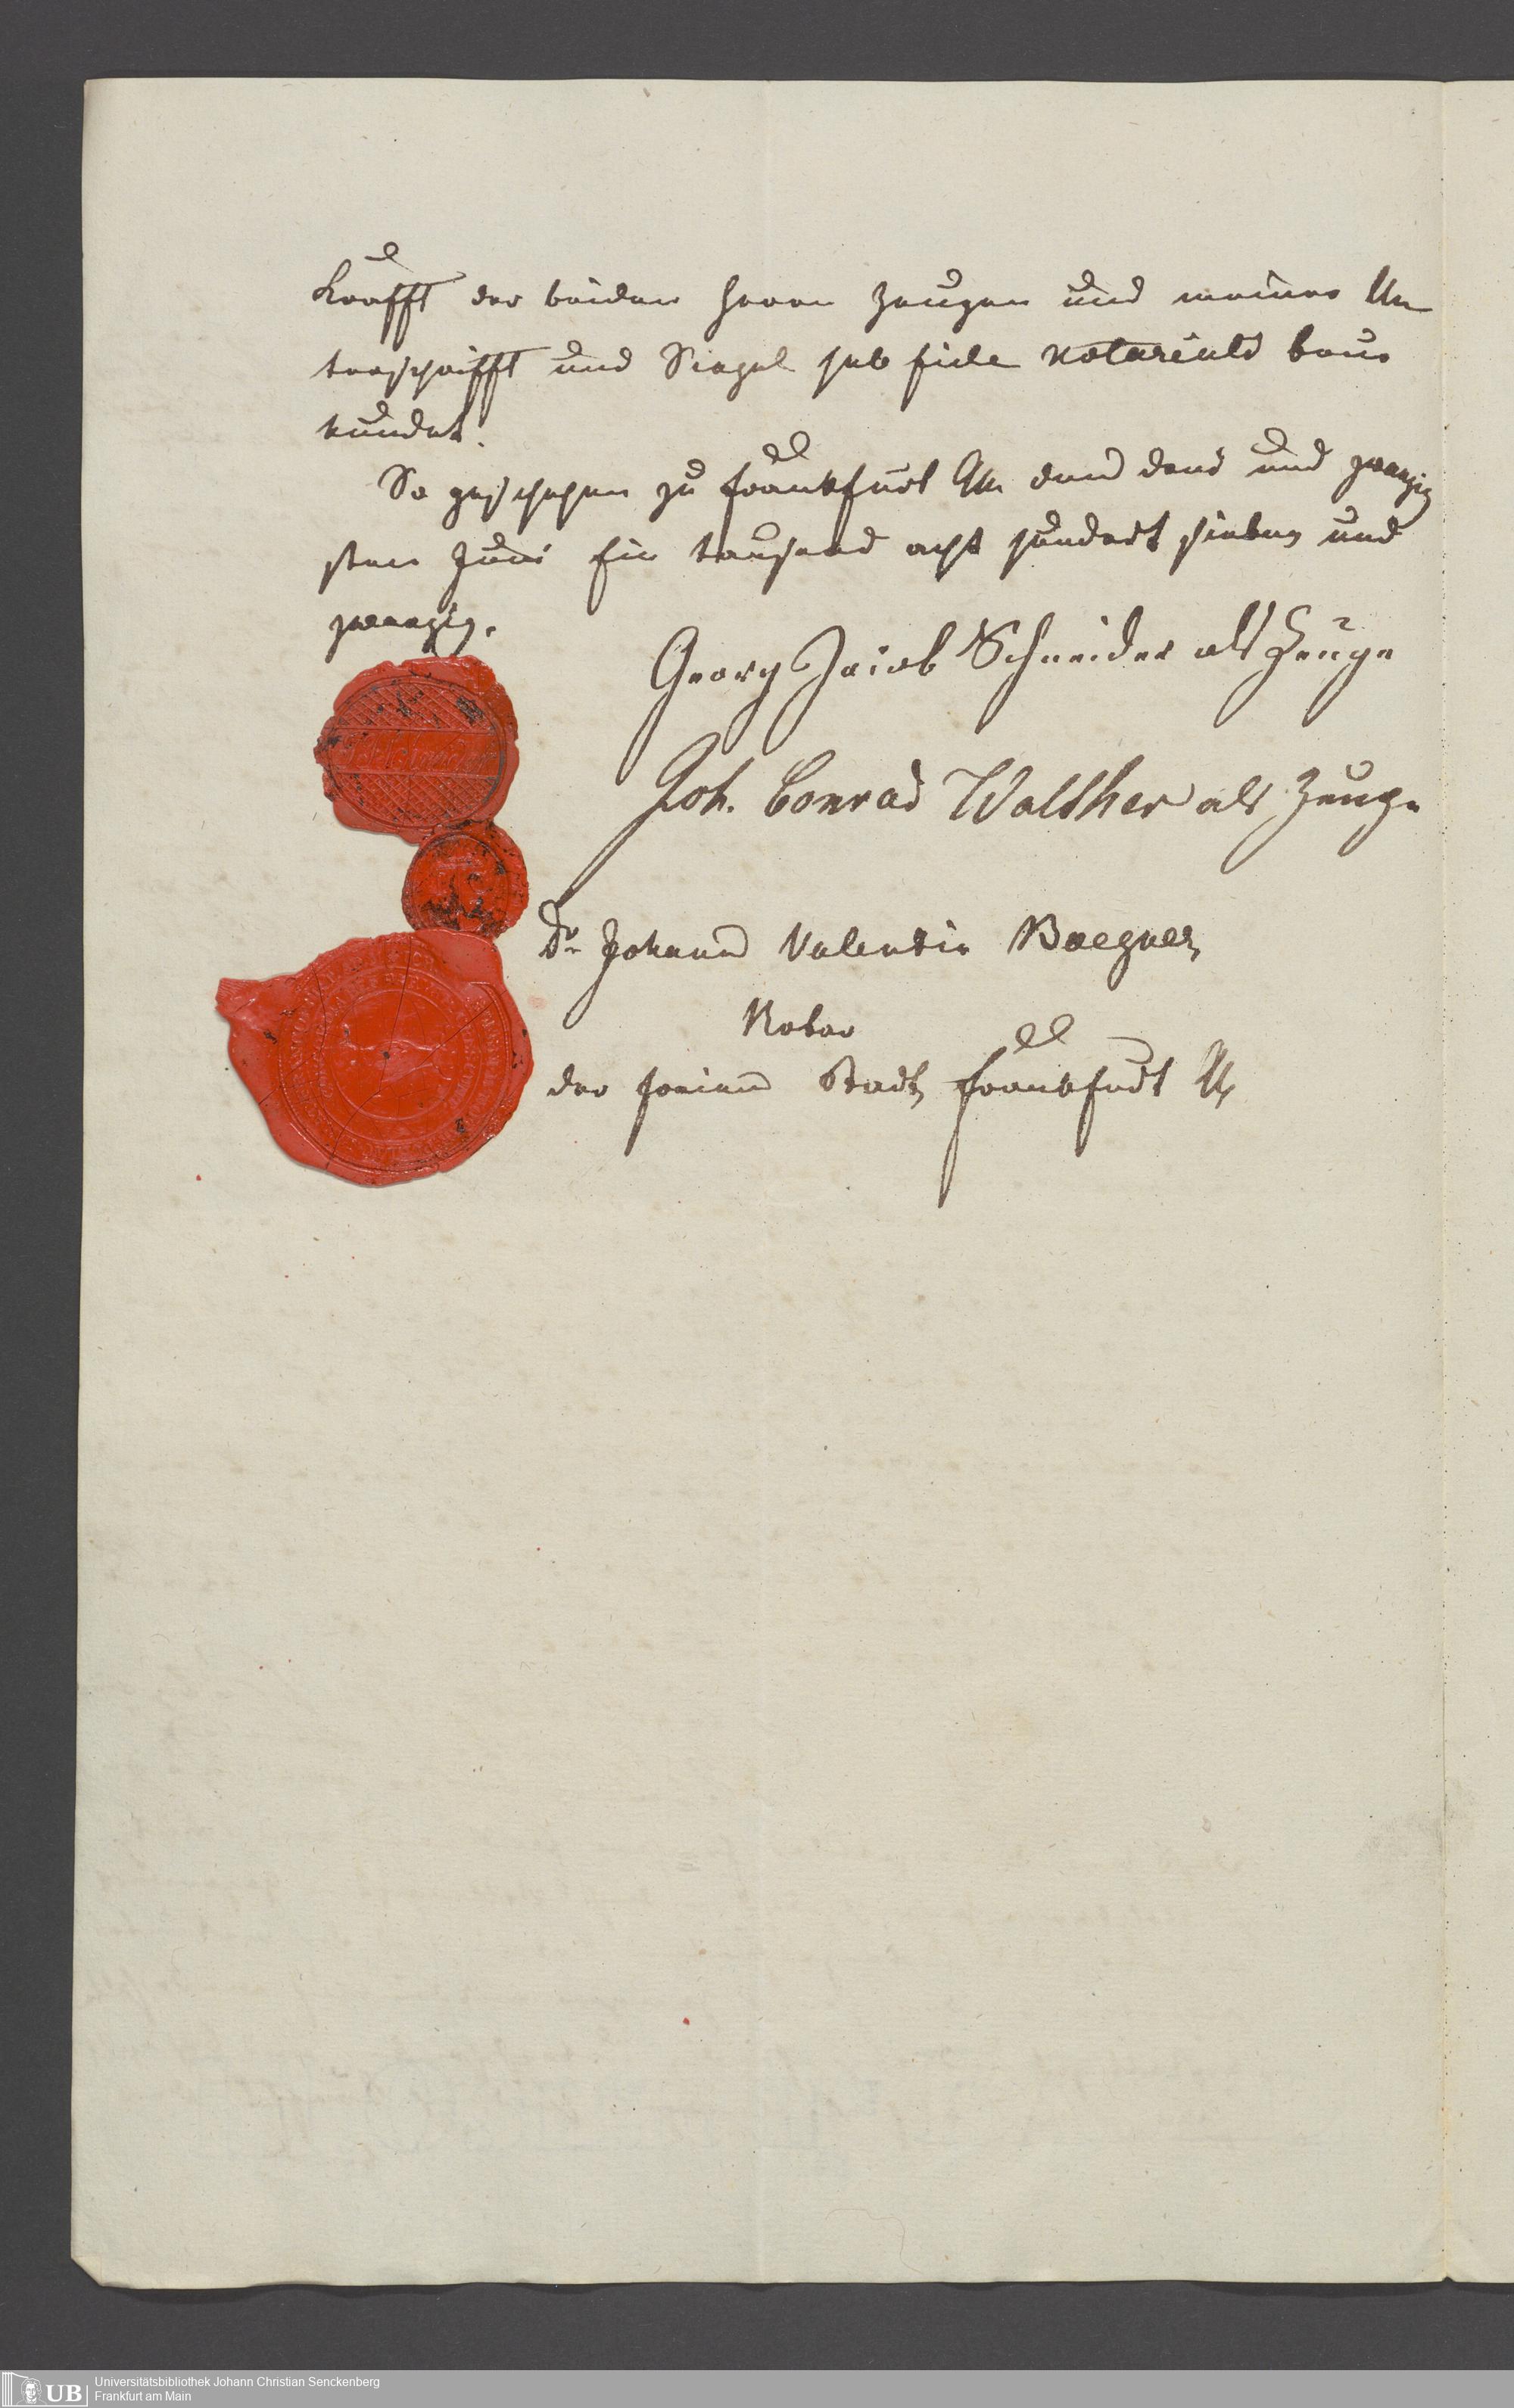 Krafft der beiden Herrn Zeugen und meiner Un
terschrifft und Siegel sub fide notariali beur
kundet.
So geschehen zu Frankfurt a/m den drei und zwanzig
sten Juni Ein tausend acht hundert sieben und
zwanzig.
Georg Jacob Schneider als Zeuge
Joh. Conrad Walther als Zeuge
Dr Johann Valentin
Notar
der freien Stadt Frankfurt a/m
UB Universitätsbibliothek Johann Christian Senckenberg
Frankfurt am Main